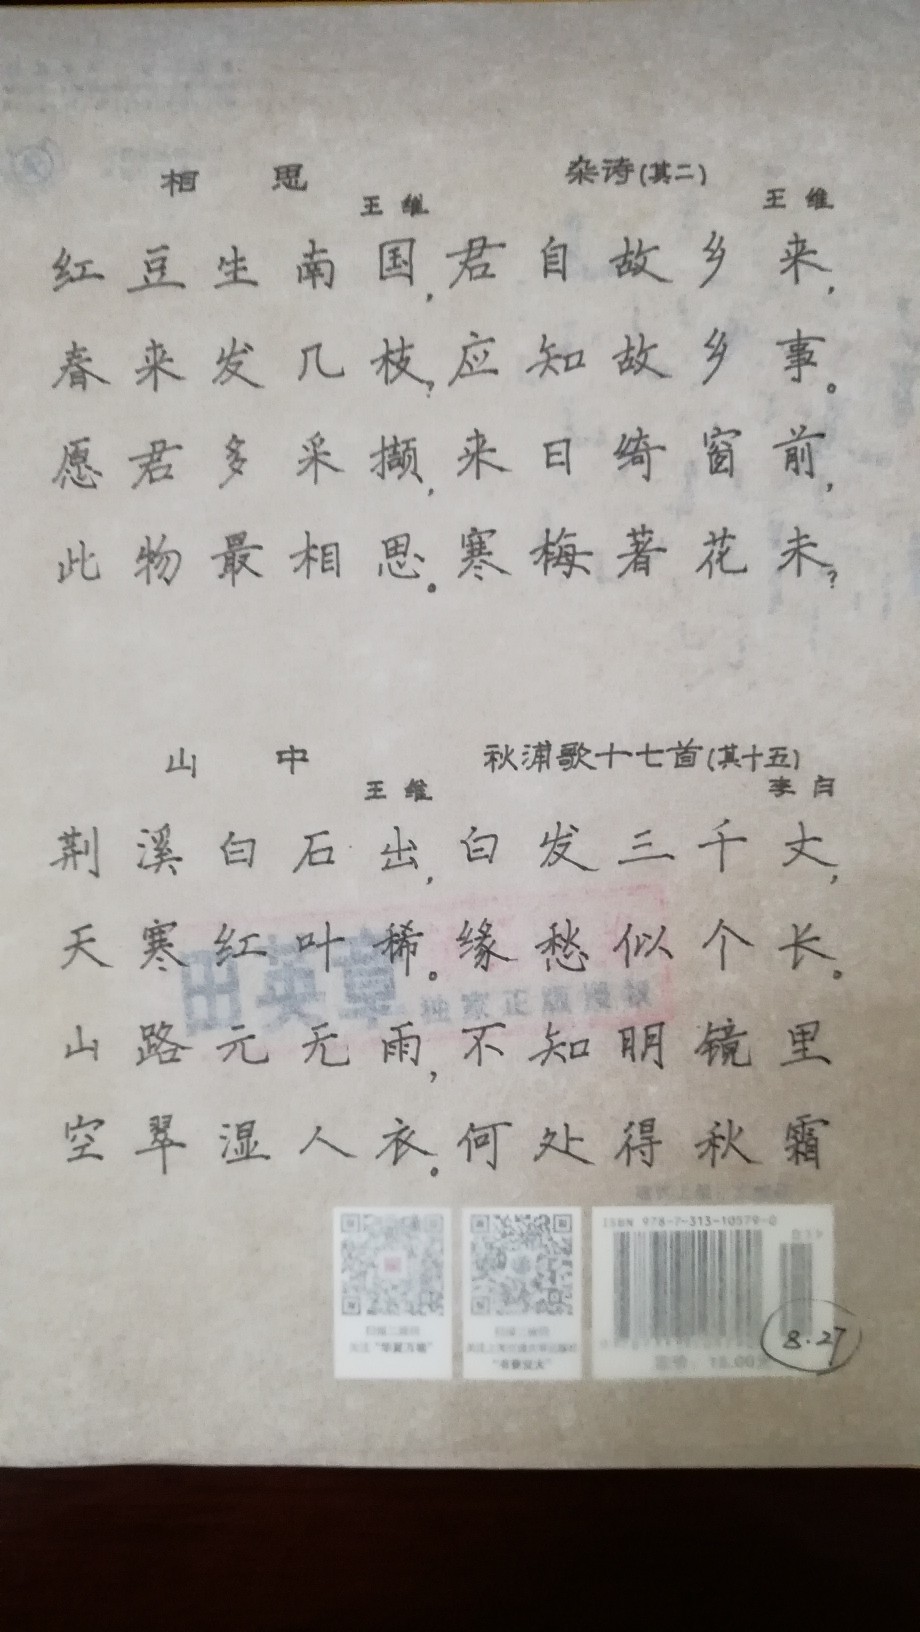 相思
王维
红豆生南国，
春来发几枝？
愿君多采撷，
此物最相思。
杂诗(其二)
王维
君自故乡来，
应知故乡事。
来日绮窗前，
寒梅著花未？
山中
王维
荆溪白石出，
天寒红叶稀。
山路元无雨，
空翠湿人衣。
秋浦歌十七首(其十五)
李白
白发三千丈，
缘愁似个长。
不知明镜里
何处得秋霜
田英章
独家正版授权
扫描二维码
关注"华夏万卷"
ISBN 978-7-313-10579-0
定价：15.00元
8.27